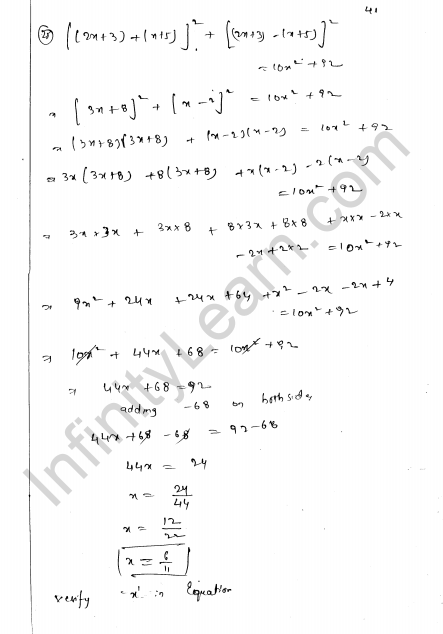 41
28) [(2x+3) + (x+5)]² + [(2x+3) - (x+5)]²
= 10x² + 92
⇒ [3x+8]² + [x-2]² = 10x² + 92
⇒ (3x+8)(3x+8) + (x-2)(x-2) = 10x² + 92
⇒ 3x(3x+8) + 8(3x+8) + x(x-2) - 2(x-2)
= 10x² + 92
⇒ 3x×3x + 3x×8 + 8×3x + 8×8 + x×x - 2×x
- 2x + 2×2 = 10x² + 92
⇒ 9x² + 24x + 24x + 64 + x² - 2x - 2x + 4
= 10x² + 92
⇒ 10x² + 44x + 68 = 10x² + 92
⇒ 44x + 68 = 92
adding -68 on both sides
44x + 68 - 68 = 92 - 68
44x = 24
x = 24/44
x = 12/22
x = 6/11
Verify 'x' in Equation
InfinityLearn.com